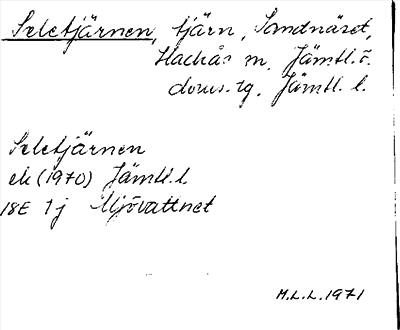 Seletjärnen, tjärn, Sandnäset,
Hackås sn, Jämtl.ö.
doms.lg. Jämtl. l.
Seletjärnen
ek (1970) Jämtl.l.
18E 7j Mjövattnet
M.L.L. 1971